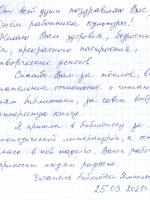 От всей души поздравляю Вас
Днём работника культуры!
Желаю Вам здоровья, бодрости
прекрасного настроения,
творческих успехов.
Спасибо Вам за теплое, в
отношение к читате
библиотеки, за совет выбр
интересную книгу.
Я пришла в библиотеку за
литературой, а ос
в ней надолго. Ваша работ
приносит людям радость.
Читатель библиотеки
25.03.2021г.